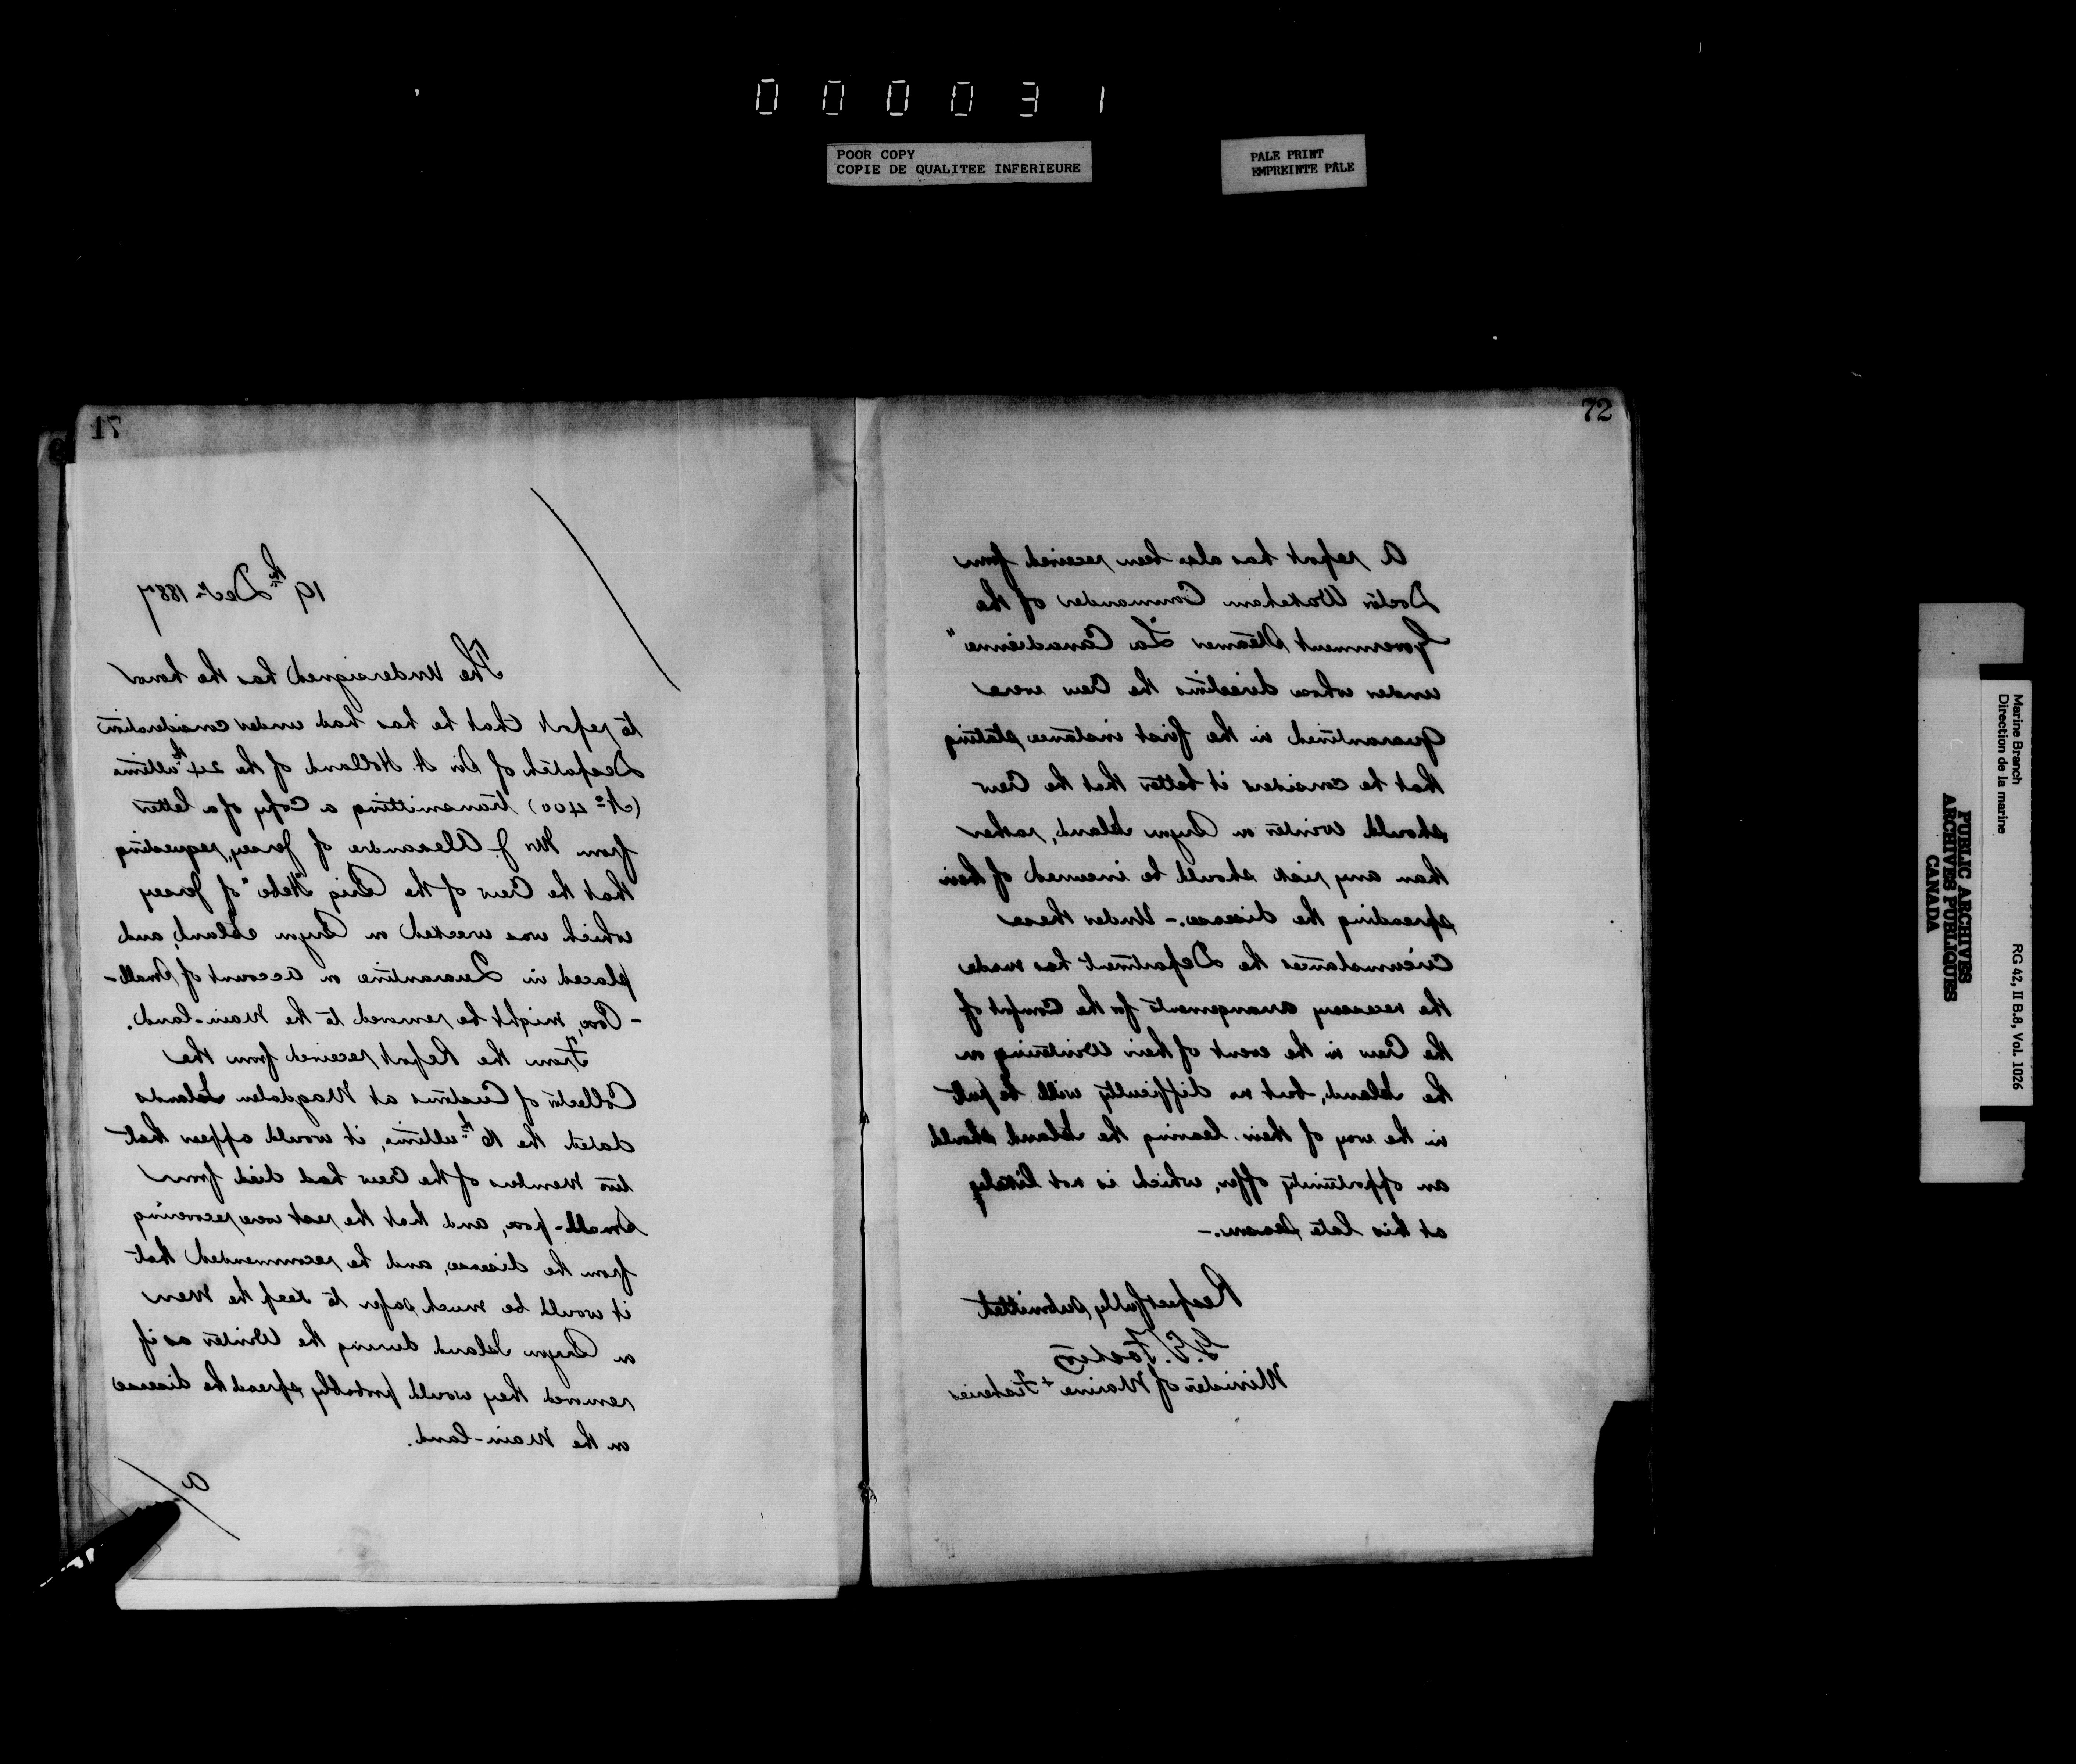 000031
POOR COPY
COPIE DE QUALITEE INFERIEURE
PALE PRINT
EMPREINTE PÂLE
17
19th Decr 1887
The Undersigned has the honor
to report that he has had under consideration
Despatch of Sir H. Holland of the 24th ultimo
(No 400) transmitting a Copy of a letter
from Mr J. Alexandre of Jersey, requesting
that the Crew of the Brig "Hebe" of Jersey
which was wrecked on Bryon Island, and
placed in Quarantine on account of Small-
-Pox, might be removed to the Main-land.
From the Report received from the
Collector of Customs at Magdalen Islands
dated the 16th ultimo, it would appear that
two Members of the Crew had died from
Small-pox, and that the rest were recovering
from the disease, and he recommended that
it would be much safer to keep the Men
on Bryon Island during the Winter as if
removed they would probably spread the disease
on the Main-land.
a
72
A report has also been received from
Doctor Wakeham Commander of the
Government Steamer "La Canadienne"
under whose directions the Crew were
quarantined in the first instance, stating
that he considers it better that the Crew
should Winter on Bryon Island, rather
than any risk should be incurred of their
spreading the disease.- Under these
Circumstances the Department has made
the necessary arrangements for the Comfort of
the Crew in the event of their Wintering on
the Island, but no difficulty will be put
in the way of their leaving the Island should
an opportunity offer, which is not likely
at this late Season.-
Respectfully submitted
G.E. Foster
Minister of Marine + Fisheries
Marine Branch
Direction de la marine
RG 42, II B.8, Vol. 1026
PUBLIC ARCHIVES
ARCHIVES PUBLIQUES
CANADA